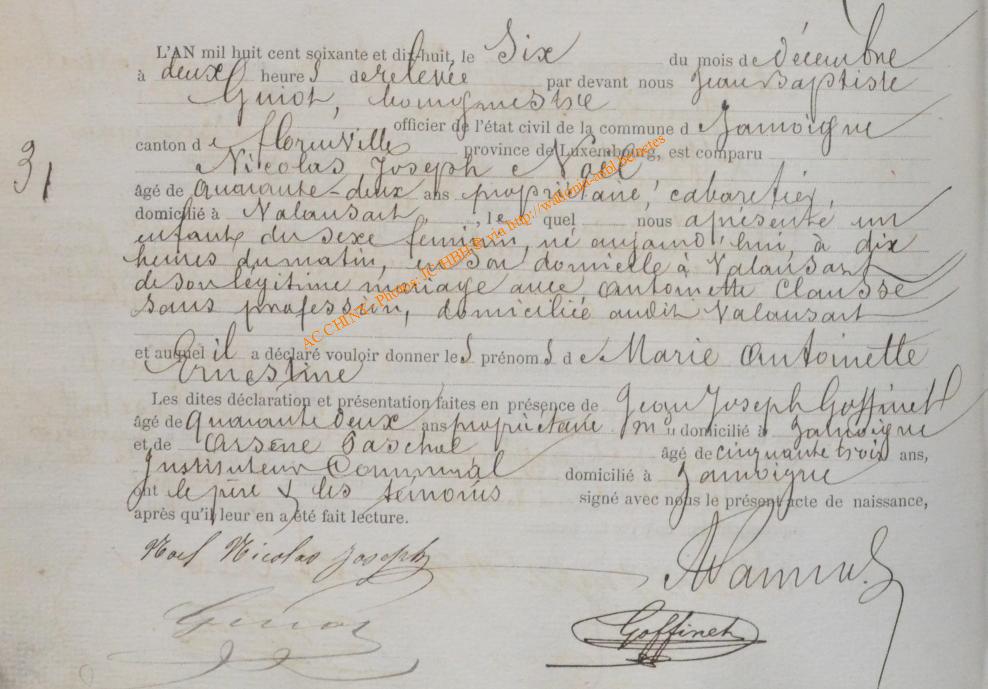 L'AN mil huit cent soixante et dix-huit, le Six du mois de décembre
à deux heures de relevée par devant nous Jean Baptiste
Guiot, bourgmestre
officier de l'état civil de la commune de Jamoigne
canton de Florenville province de Luxembourg, est comparu
31
Nicolas Joseph Noël
âgé de quarante-deux ans propriétaire, cabaretier,
domicilié à Valansart, lequel nous a présenté un
enfant du sexe féminin, né aujourd'hui, à dix
heures du matin, en son domicile à Valansart
de son légitime mariage avec Antoinette Clausse
sans profession, domiciliée audit Valansart
et auquel il a déclaré vouloir donner les prénoms de Marie Antoinette
Ernestine
Les dites déclaration et présentation faites en présence de Joseph Goffinet
âgé de quarante deux ans propriétaire domicilié à Jamoigne
et de Arsène âgé de cinquante trois ans,
Instituteur Communal domicilié à Jamoigne
ont le père & les témoins signé avec nous le présent acte de naissance,
après qu'il leur en a été fait lecture.
Noel Nicolas Joseph
Guiot
Goffinet
AC CHINY - Photos: IC HBH © via http://wallonia-asbl.be/actes